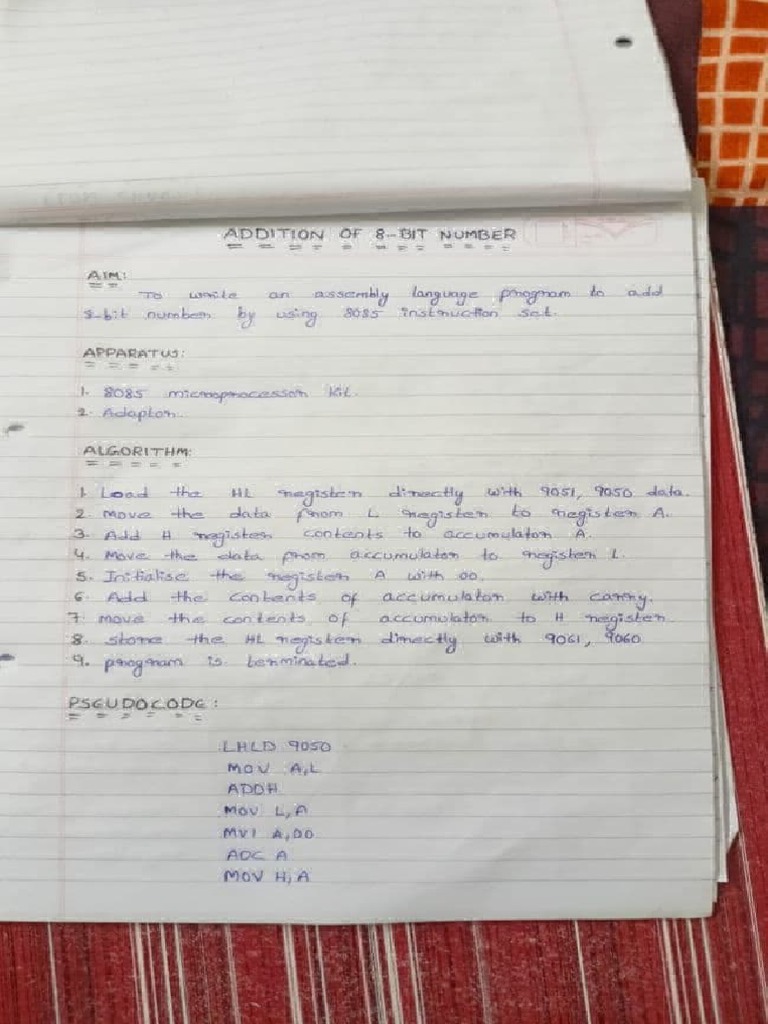 ADDITION OF 8-BIT NUMBER
AIM:
To write an assembly language program to add
8-bit number by using 8085 instruction set.
APPARATUS:
1. 8085 microprocessor kit.
2. Adaptor.
ALGORITHM:
1. Load the HL register directly with 9051, 9050 data.
2. Move the data from L register to register A.
3. Add H register contents to accumulator A.
4. Move the data from accumulator to register L.
5. Initialise the register A with 00.
6. Add the contents of accumulator with carry.
7. Move the contents of accumulator to H register.
8. Store the HL register directly with 9061, 9060
9. program is terminated.
PSEUDOCODE:
LHLD 9050
MOV A,L
ADDH
MOV L,A
MVI A,00
ADC A
MOV H,A